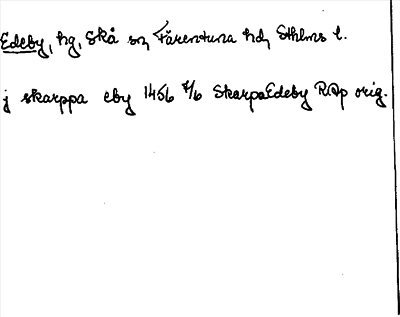 Edeby, hg, Skå sn, Färentuna hd, Sthlms l.
j skarppa eby 1456 4/6 SkarpaEdeby RAp orig.